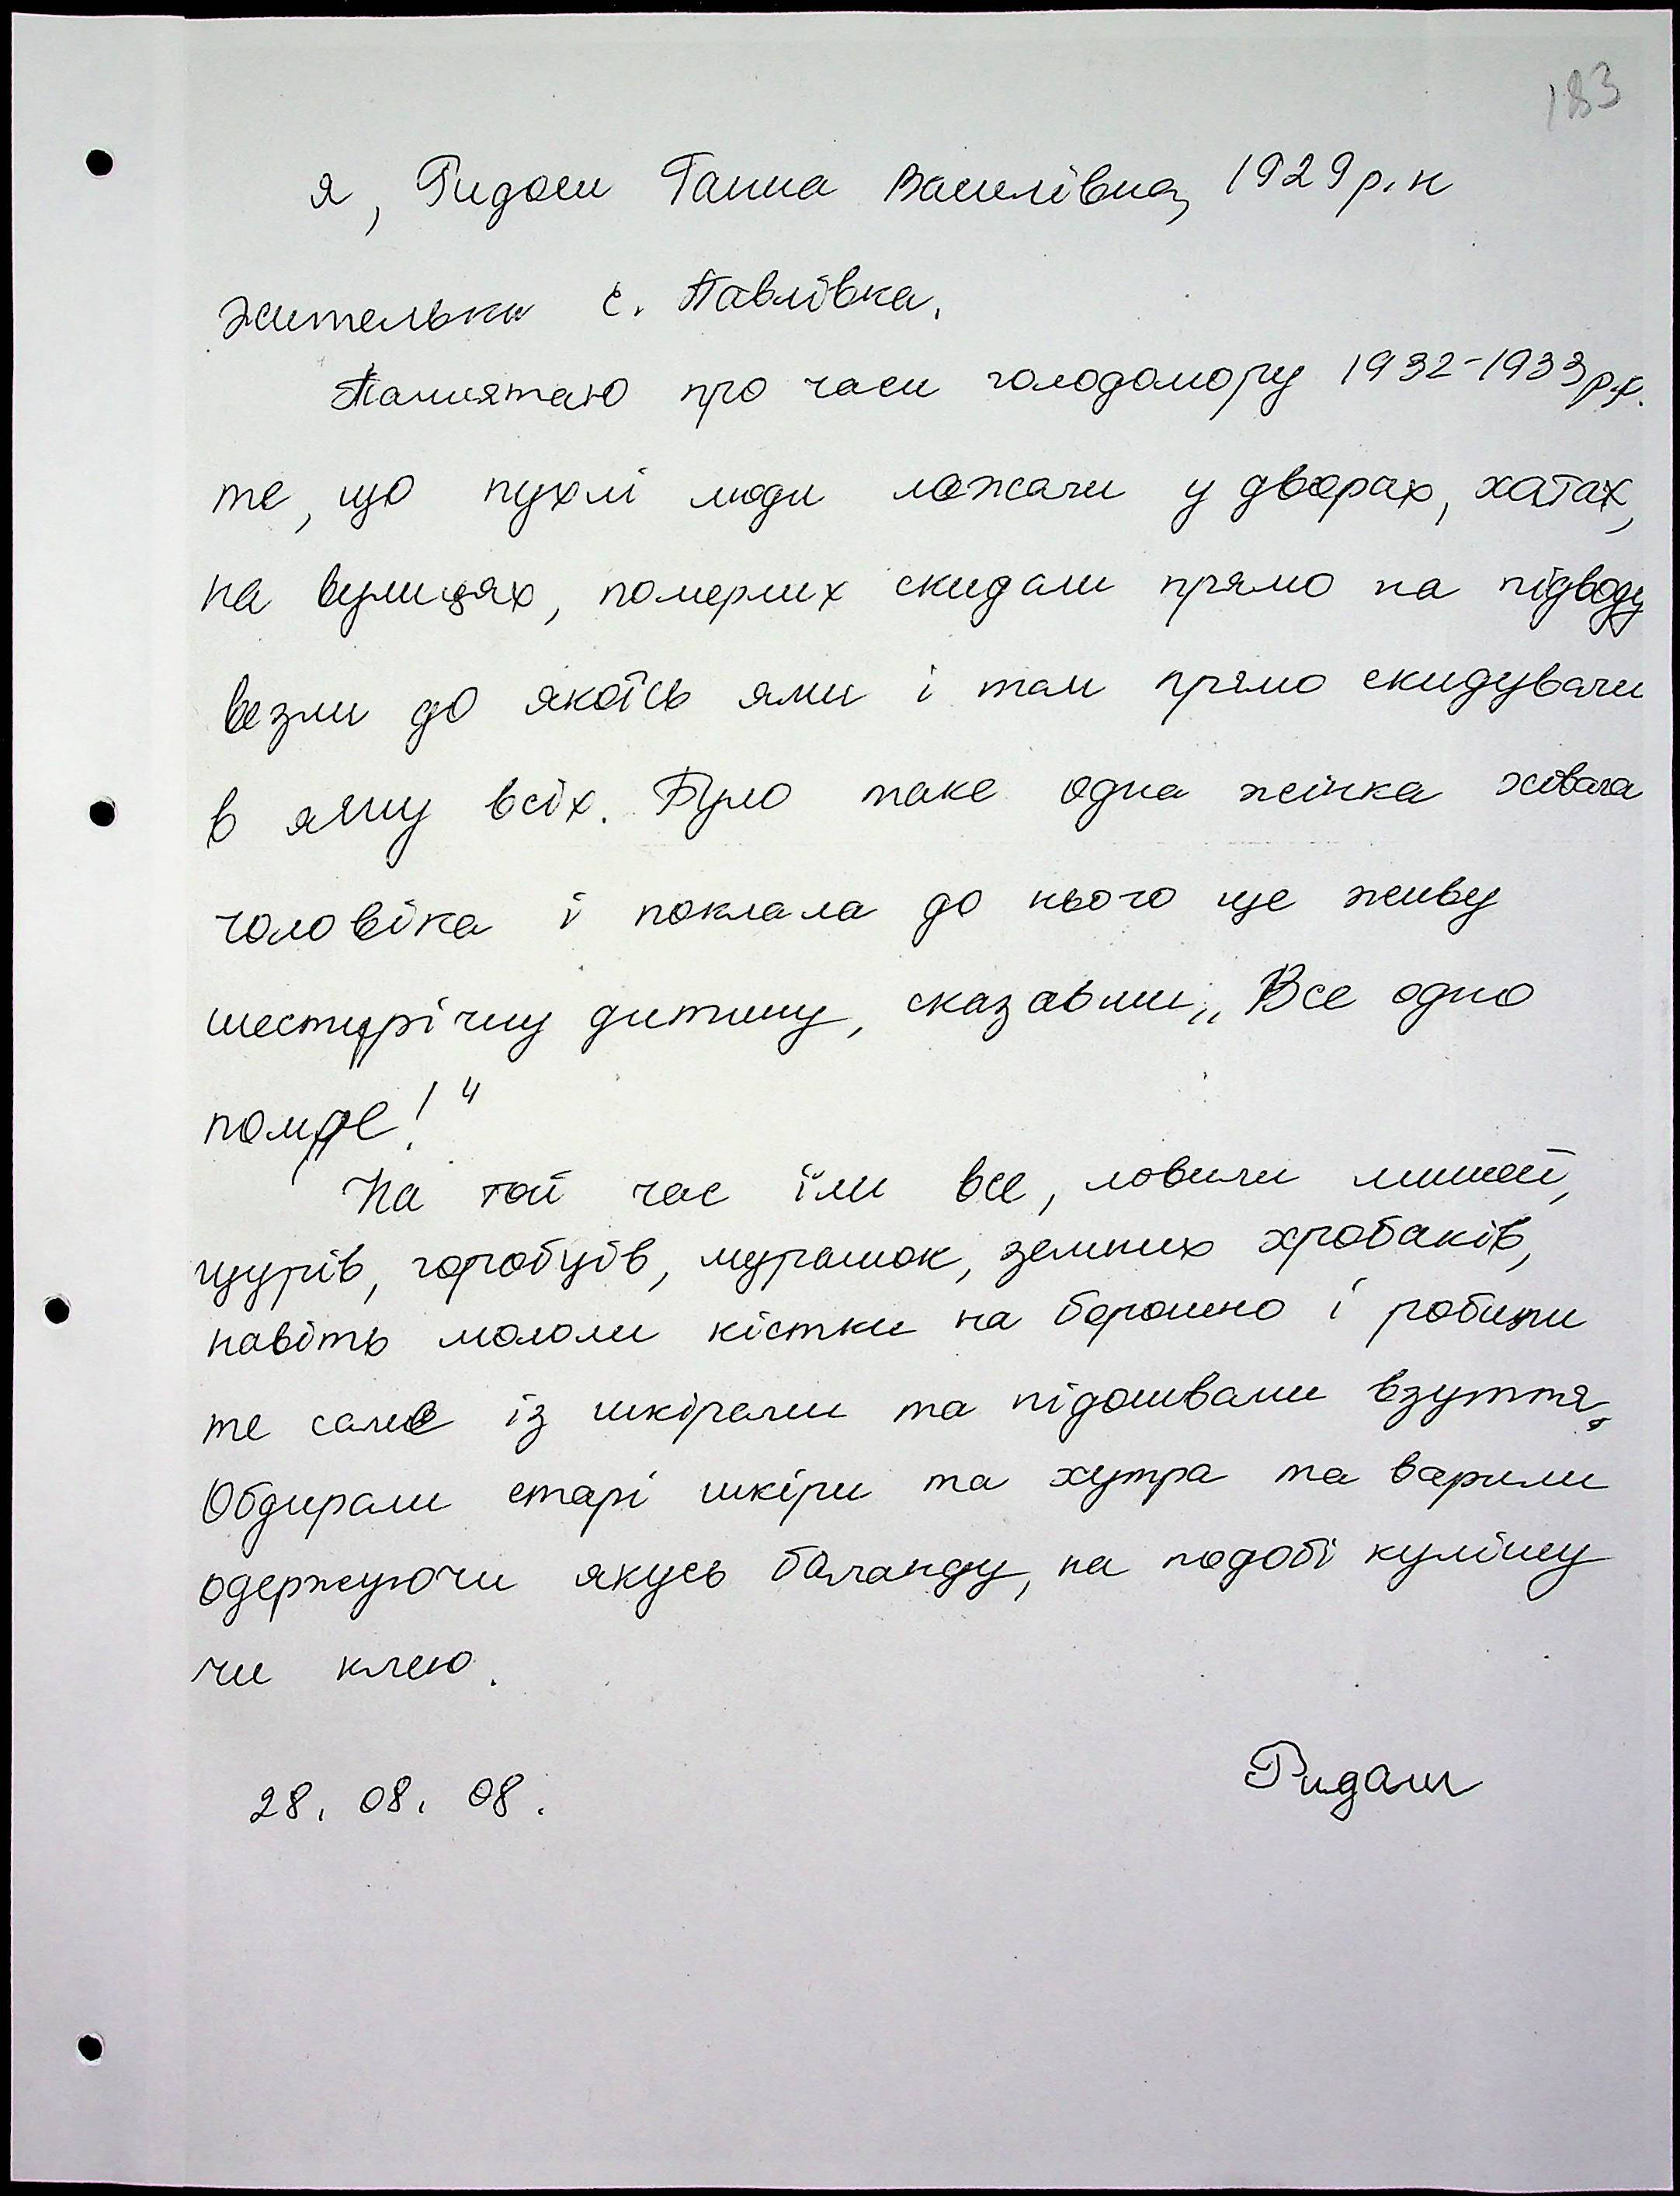 183
я, Ридаш Ганна Василівна, 1929 р.н
жителька с. Павлівка.
Памятаю про часи голодомору 1932-1933 р.р.
те, що пухлі люди лежали у дворах, хатах,
на вулицях, померлих скидали прямо на підводу
везли до якоїсь ями і там прямо скидували
в яму всіх. Було таке одна жінка ховала
чоловіка і поклала до нього ще живу
шестирічну дитину, сказавши „Все одно
помре!"
На той час їли все, ловили мишей,
щурів, горобців, мурашок, земних хробаків,
навіть мололи кістки на борошно і робили
те саме із шкірами та підошвами взуття.
Обдирали старі шкіри та хутра та варили
одержуючи якусь баланду, на подобі кулішу
чи клею.
28. 08. 08.
Ридаш